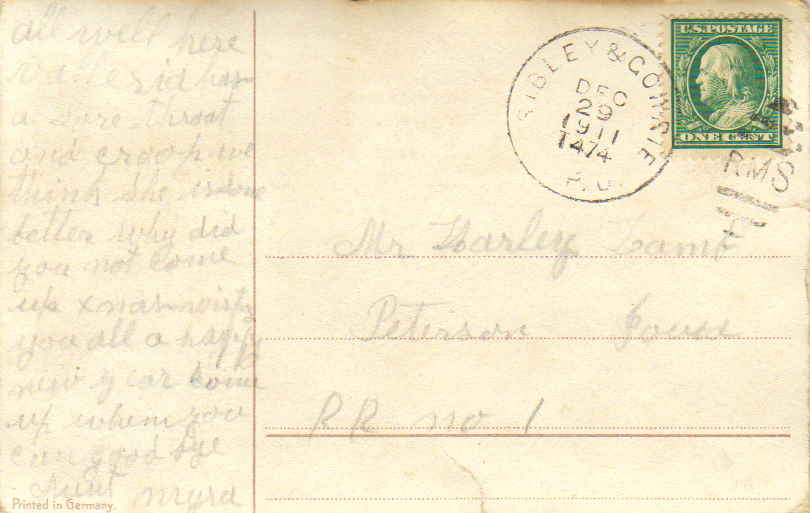 all well here
had a
a sore throat
and croop we
think she is some
better why did
you not come
up xmas wish
you all a happy
new year come
up when you
can good bye
Aunt Myra
Printed in Germany.
SIBLEY & GOWRIE
DEC
29
1911
T474
R.P.O.
U.S. POSTAGE
ONE CENT
RMS
Mr Harley Lamp
Peterson Iowa
RR no 1